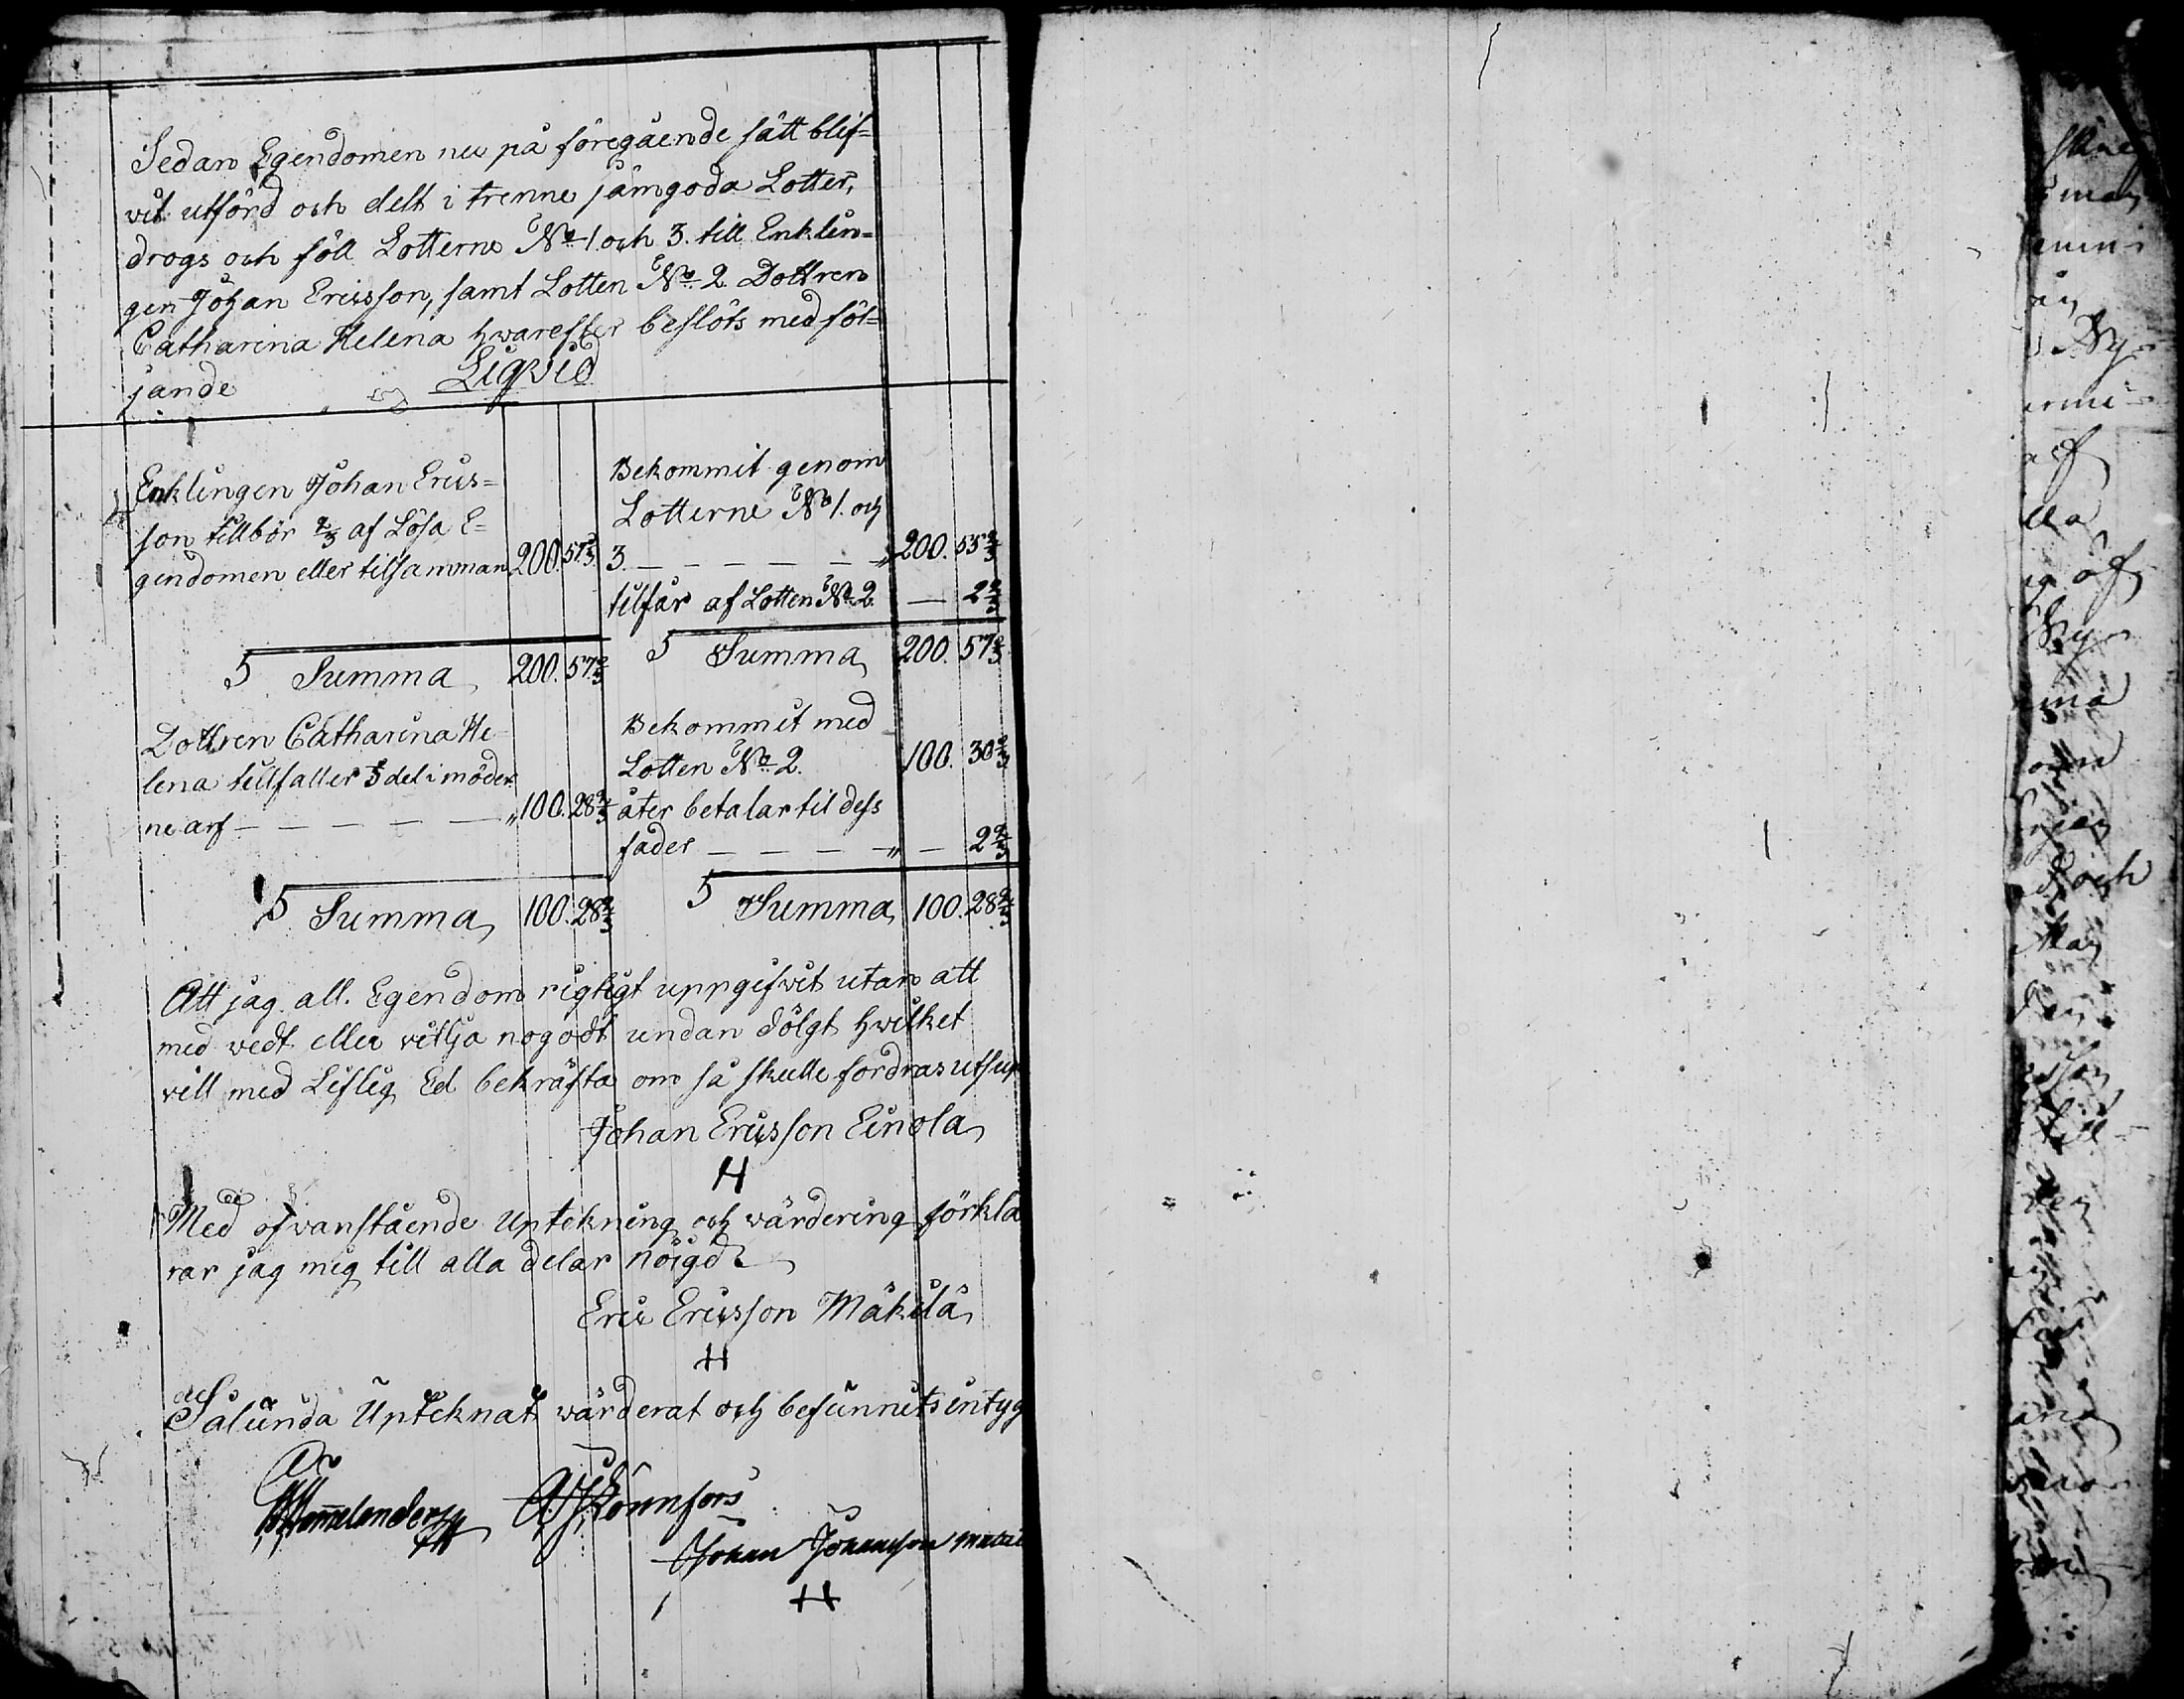 Sedan Egendomen nu på föregående sätt blif=
vit utförd och delt i trenne jämgoda Lotter,
drogs och föll Lotterne No 1 och 3. till Enklin=
gen Johan Ericsson, samt Lotten No 2 Dottren
Catharina Helena hwarefter beslöts med föl=
jande Liqvid
Enklingen Johan Erics=
son tillbör 2/3 af Lösa E=
gendomen eller tilsamman 200. 57 2/3.
Bekommit genom
Lotterne No 1. och
3. — — — — — „ 200. 55 2/3
tilfår af Lotten No 2 — 2 2/3
S Summa 200. 57 2/3
S Summa 200. 57 2/3
Dottren Catharina He=
lena tillfaller 1/3 del i möder
ne arf — — — — — „ 100. 28 2/3
Bekommit med
Lotten No 2. 100. 30 2/3
åter betalar til dess
fader — — — — „ — 2 2/3
S Summa 100. 28 2/3
S Summa 100. 28 2/3
Att jag all Egendom rigtigt uppgifvit utan att
med wedt eller vilja nogodt undan dölgt hwilket
vill med Liflig Ed bekräfta om så skulle fordras utsup
Johan Ericsson Einola
H
Med ofvanstående Uptekning och wärdering förkla
rar jag mig till alla delar nöigd
Eric Ericsson Mäkilä
H
Sålunda Upteknat wärderat och befunnits intyg
Johan Johansson
H